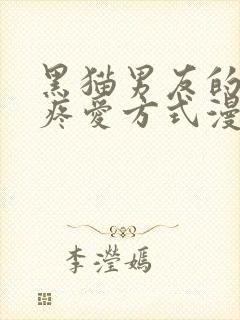 黑猫男友的
疼爱方式漫
李瀅嫣